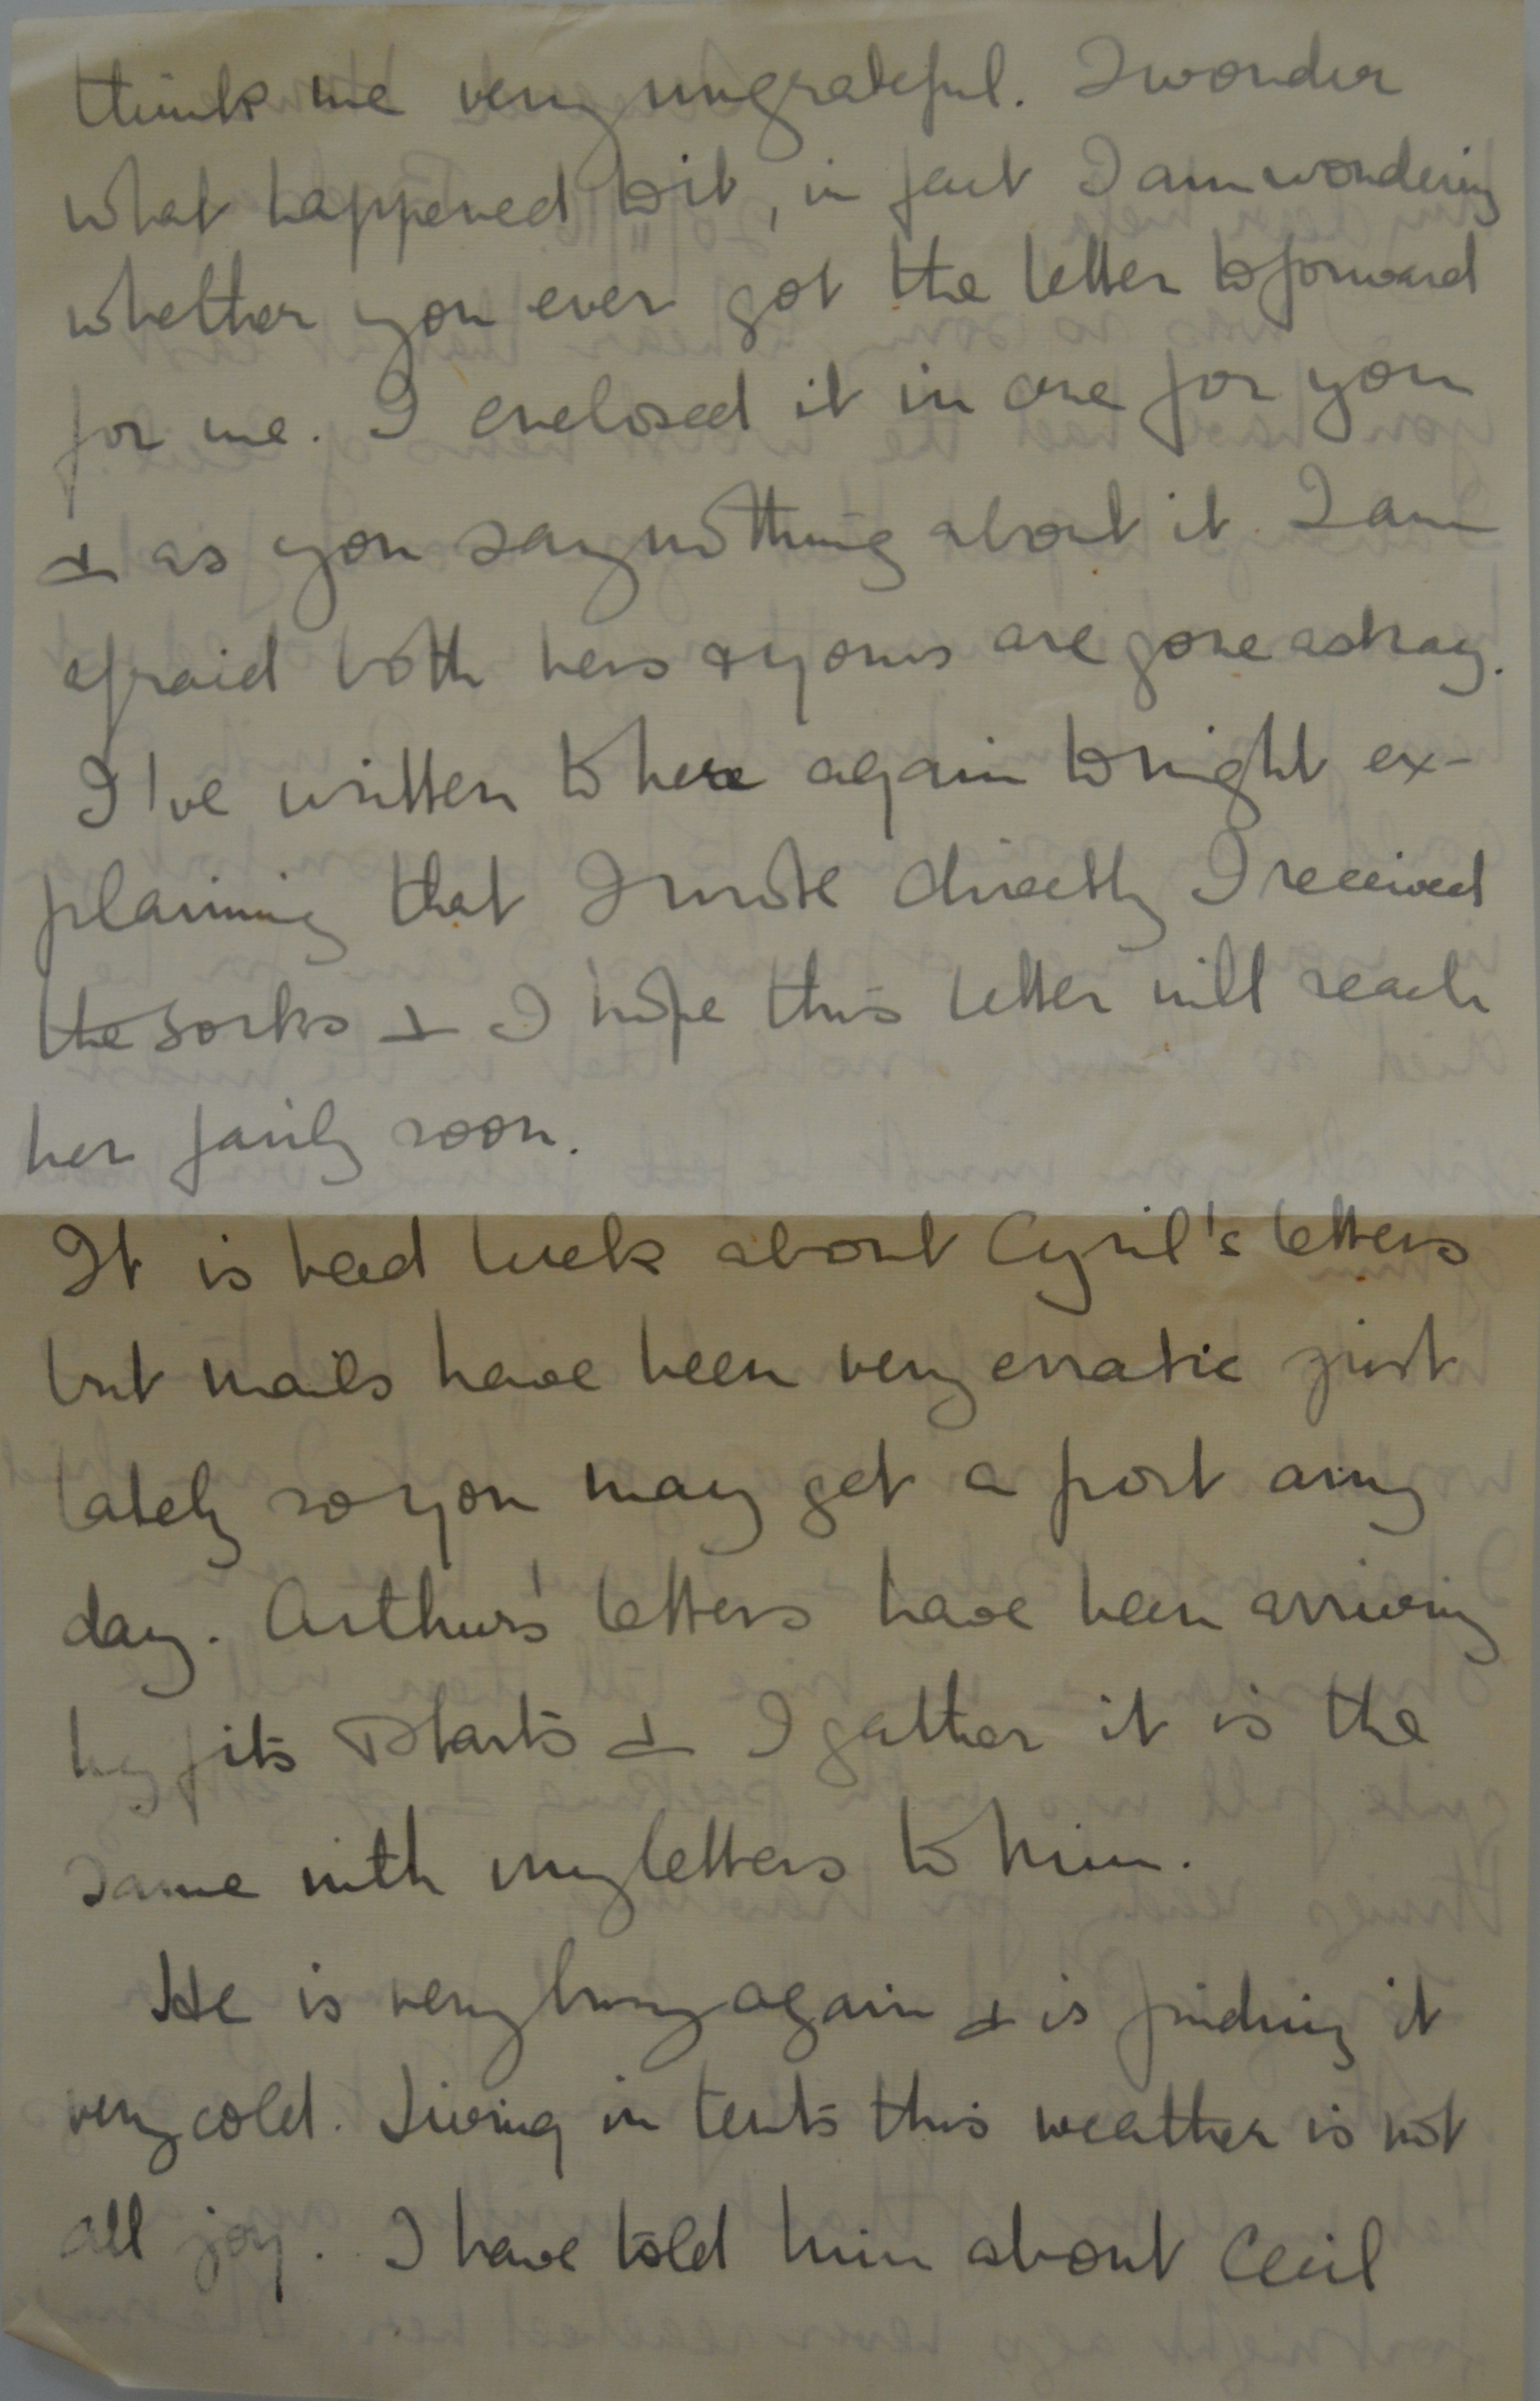 think me very ungrateful. I wonder
what happened to it, in fact I am wondering
whether you ever got the letter to forward
for me. I enclosed it in one for you
& as you say nothing about it I am
afraid both hers & yours are gone astray.
I've written to here again tonight ex-
plaining that I wrote directly I received
the socks & I hope this letter will reach
her fairly soon.
It is bad luck about Cyril's letters
but mails have been very erratic just
lately so you may get a post any
day. Arthur's letters have been arriving
by fits & starts & I gather it is the
same with my letters to him.
He is very busy again & is finding it
very cold. Living in tents this weather is not
all joy. I have told him about Cecil